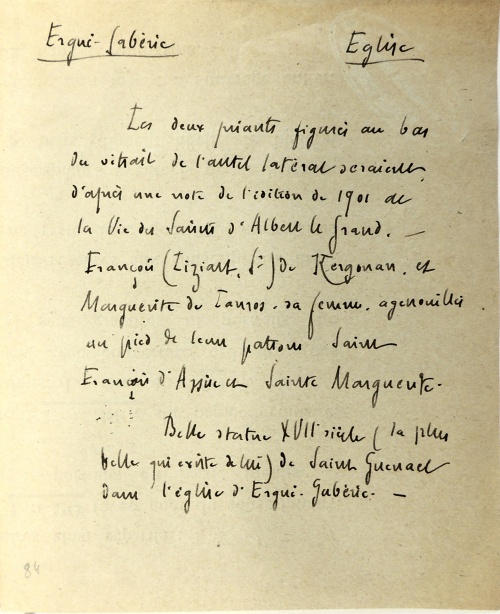 Ergué-Gabéric Eglise
Les deux priants figurés au bas
du vitrail de l'autel latéral seraient,
d'après une note de l'édition de 1901 de
la Vie des Saints d'Albert le Grand. —
François (Liziart, Sr) de Kergonan. et
Marguerite de Lanros. sa femme. agenouillés
au pied de leurs patrons Saint
François d'Assise et Sainte Marguerite.
Belle statue XVIIe siècle (la plus
belle qui existe de lui) de Saint Guenael
dans l'église d'Ergué-Gabéric. —
84